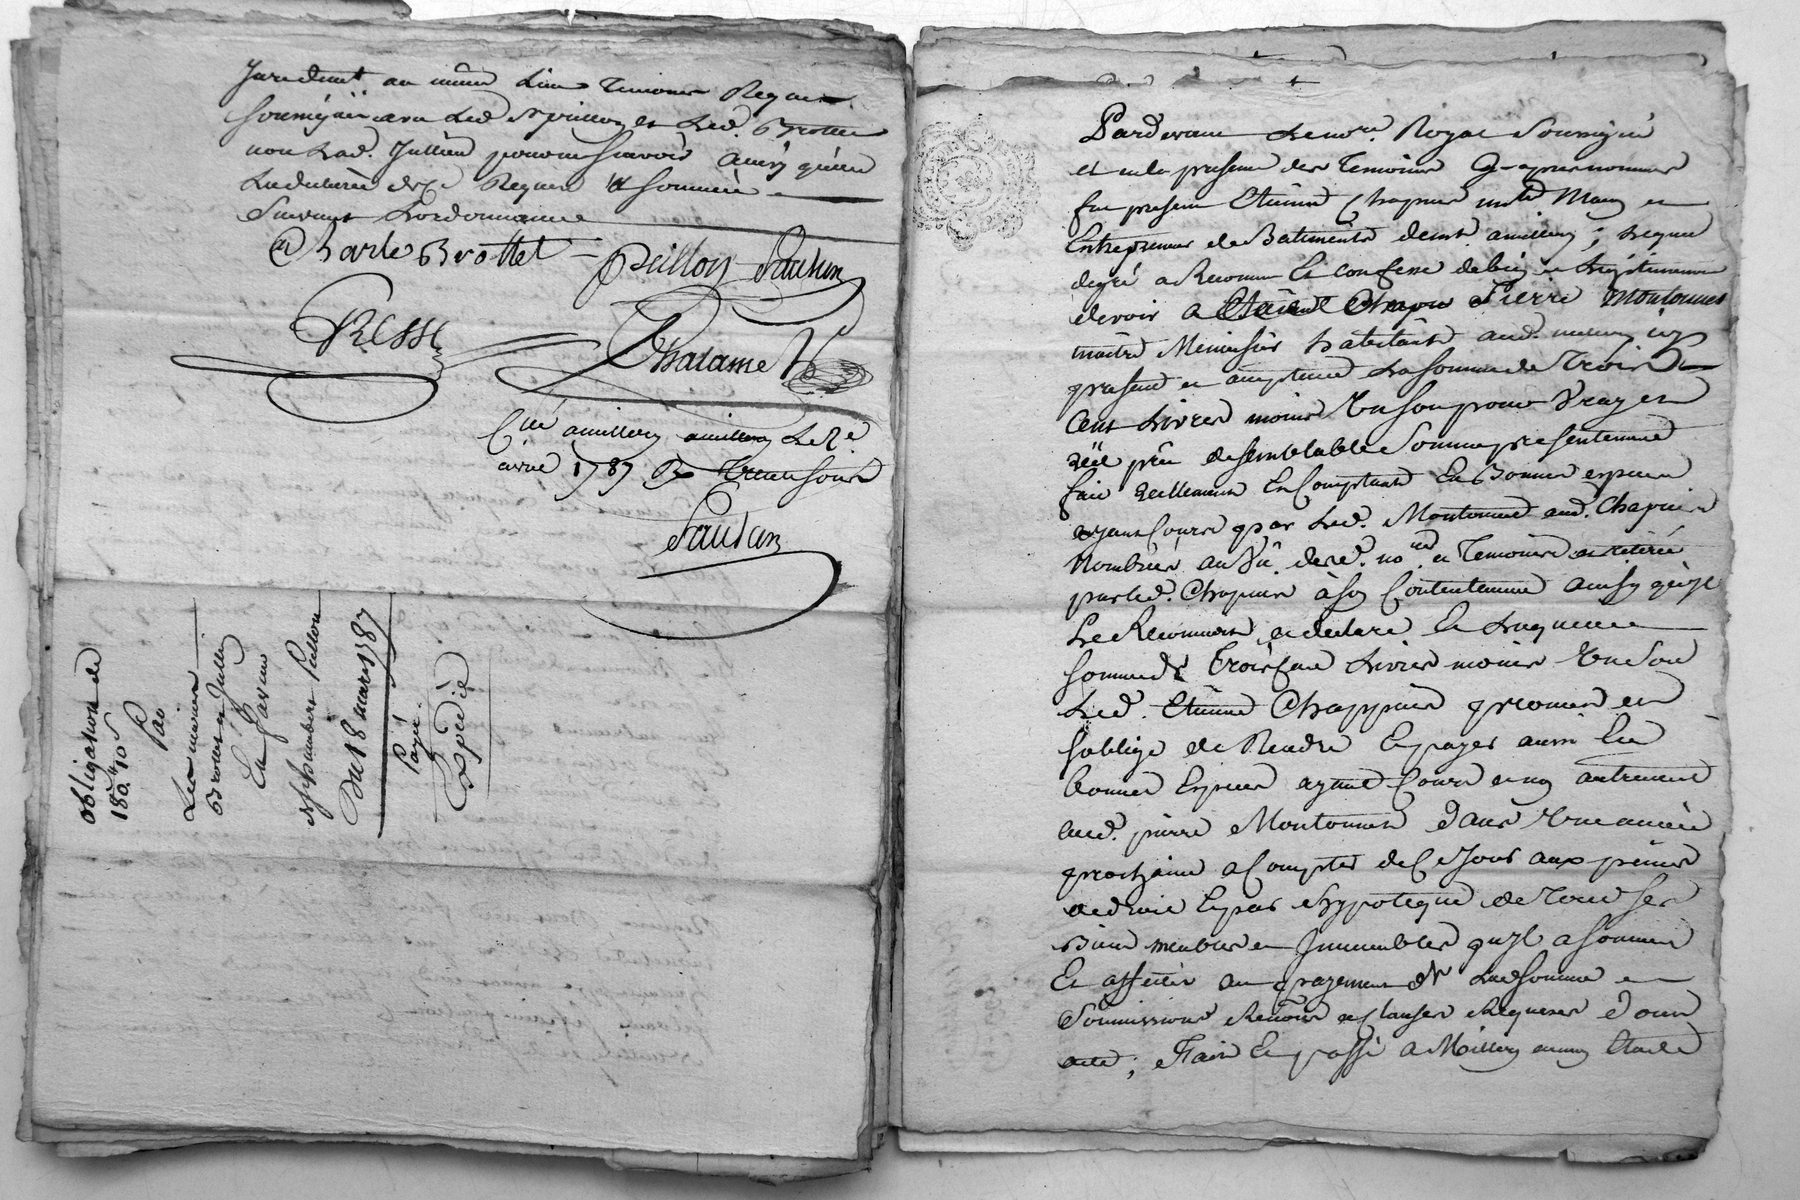 au même Lieu Temoins Requis
soussignés avec Led. Peillon et Led. Brottet
non Lad. Jullien pour ne sçavoir ainsy qu'en
Requise & sommée
Suivant Lordonnance
Charle Brottet Peillon Sautum
RESSE
Chalamel
a millery Le 2e
avril 1787 Ro Trente sous
Sautum
obligation de
180.# 10 s
Par
Les mariés
Brottet et Jullien
En faveur
de humbert Peillon
Du 18 mars 1787
Payé.
Expedié
Pardevant Le nore. Royal Soussigné
et en la presence des Temoins Cy-apres nommés
fut present Etienne Chapuis mtre Maçon et
Entrepreneur de Batiments demt. a millery ; Lequel
de gré a Reconnu Et confessé debien et Legitimement
devoir a Pierre Montonnet
maitre Menuisier habitant aud. millery icy
present et acceptant La somme de Trois
Cent Livres moins Un sou pour Vray et
réél prêt de semblable Somme presentement
fait réellement En Comptant En Bonnes especes
ayant Cours par Led. Montonnet aud. Chapuis
Nombrée au Vû desd. nore. et Temoins et retirée
par led. Chapuis à son Contentement ainsy qu'il
Le Reconnoit et declare Et Laquelle
somme de Trois Cent Livres moins Un Sou
Led. Etienne Chappuis promet et
s'oblige de Rendre Et payer aussi En
bonnes Especes ayant Cours et non autrement
aud. pierre Montonnet dans Une année
prochaine a Compter de Ce Jour aux peines
de droit Et par hypoteque de Tous ses
Biens meubles et Immeubles qu'il a soumis
Et affectés au payement de Lad. somme
Soumissions Renons et Clauses Requises dont
acte ; Fait Et passé a Millery en mon Etude